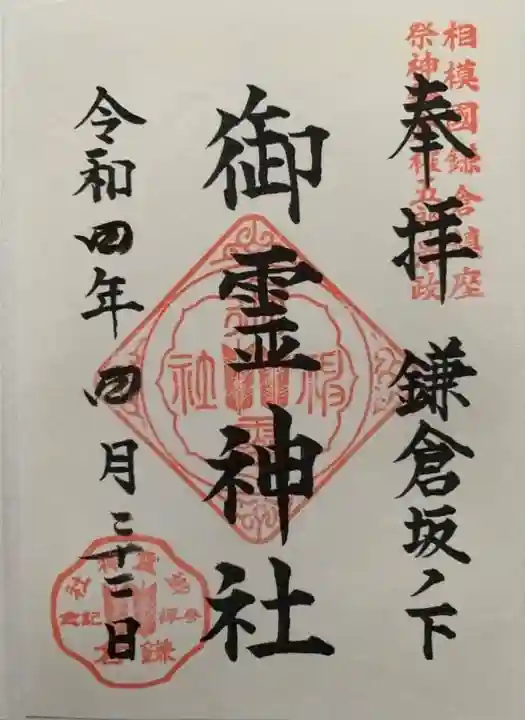 相模國鎌倉鎮座
祭神 権五郎景政
奉拝 鎌倉坂ノ下
御霊神社
令和四年四月二十一日